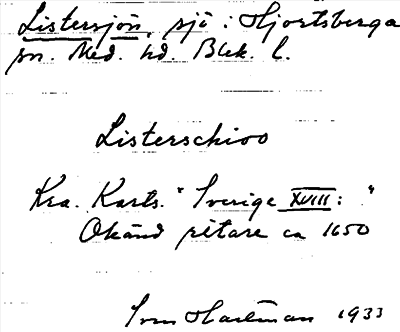 Listersjön, sjö i Hjortsberga
sn. Med. hd. Blek. l.
Listerschioo
Kra. Karts. "Sverige XVIII: "
Okänd ritare ca 1650
Sven Hartman 1933